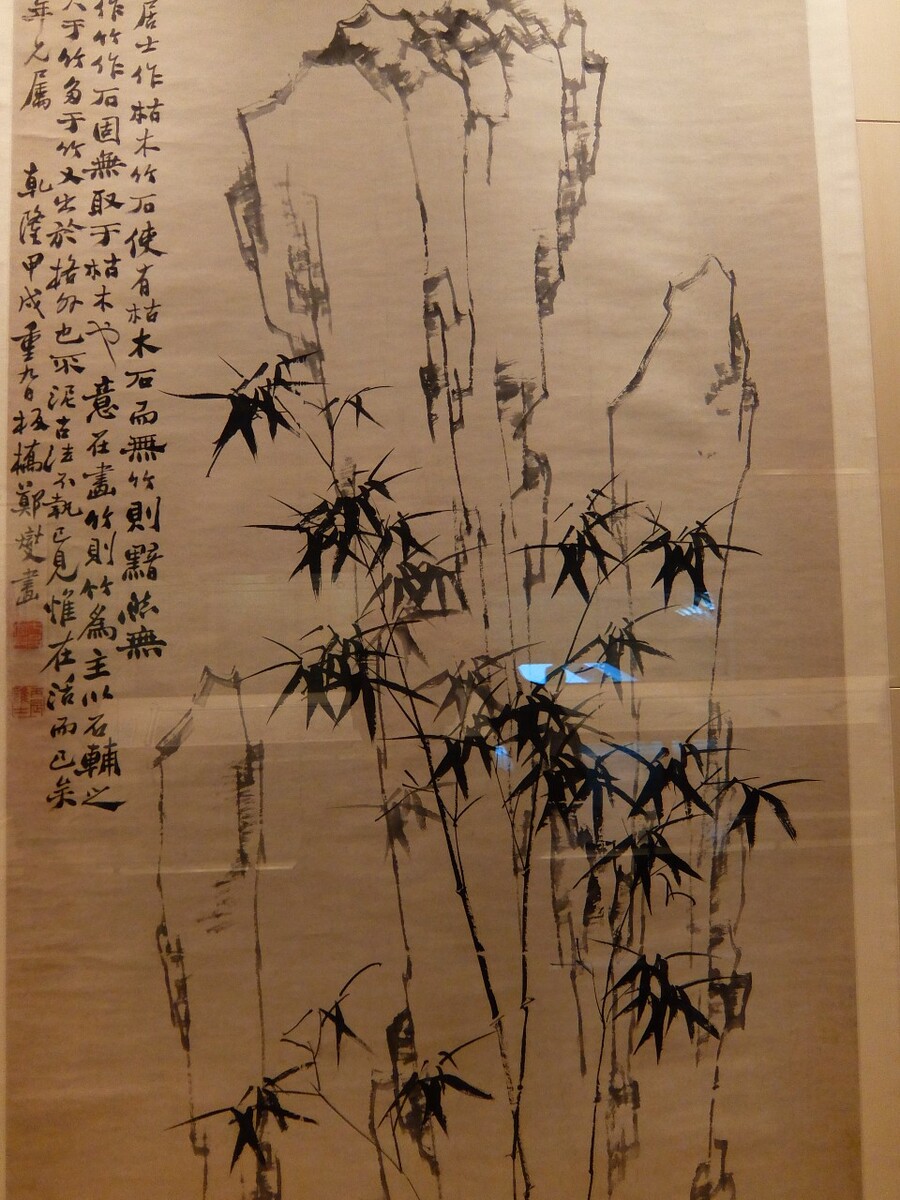 居士作枯木竹石使有枯木石而無竹則黯然無
作竹作石固無取于枯木也意在畫竹則竹為主以石輔之
于竹多于竹又出於格外也不泥古法不執己見惟在活而已矣
年兄屬 乾隆甲戌重九日板橋鄭燮畫